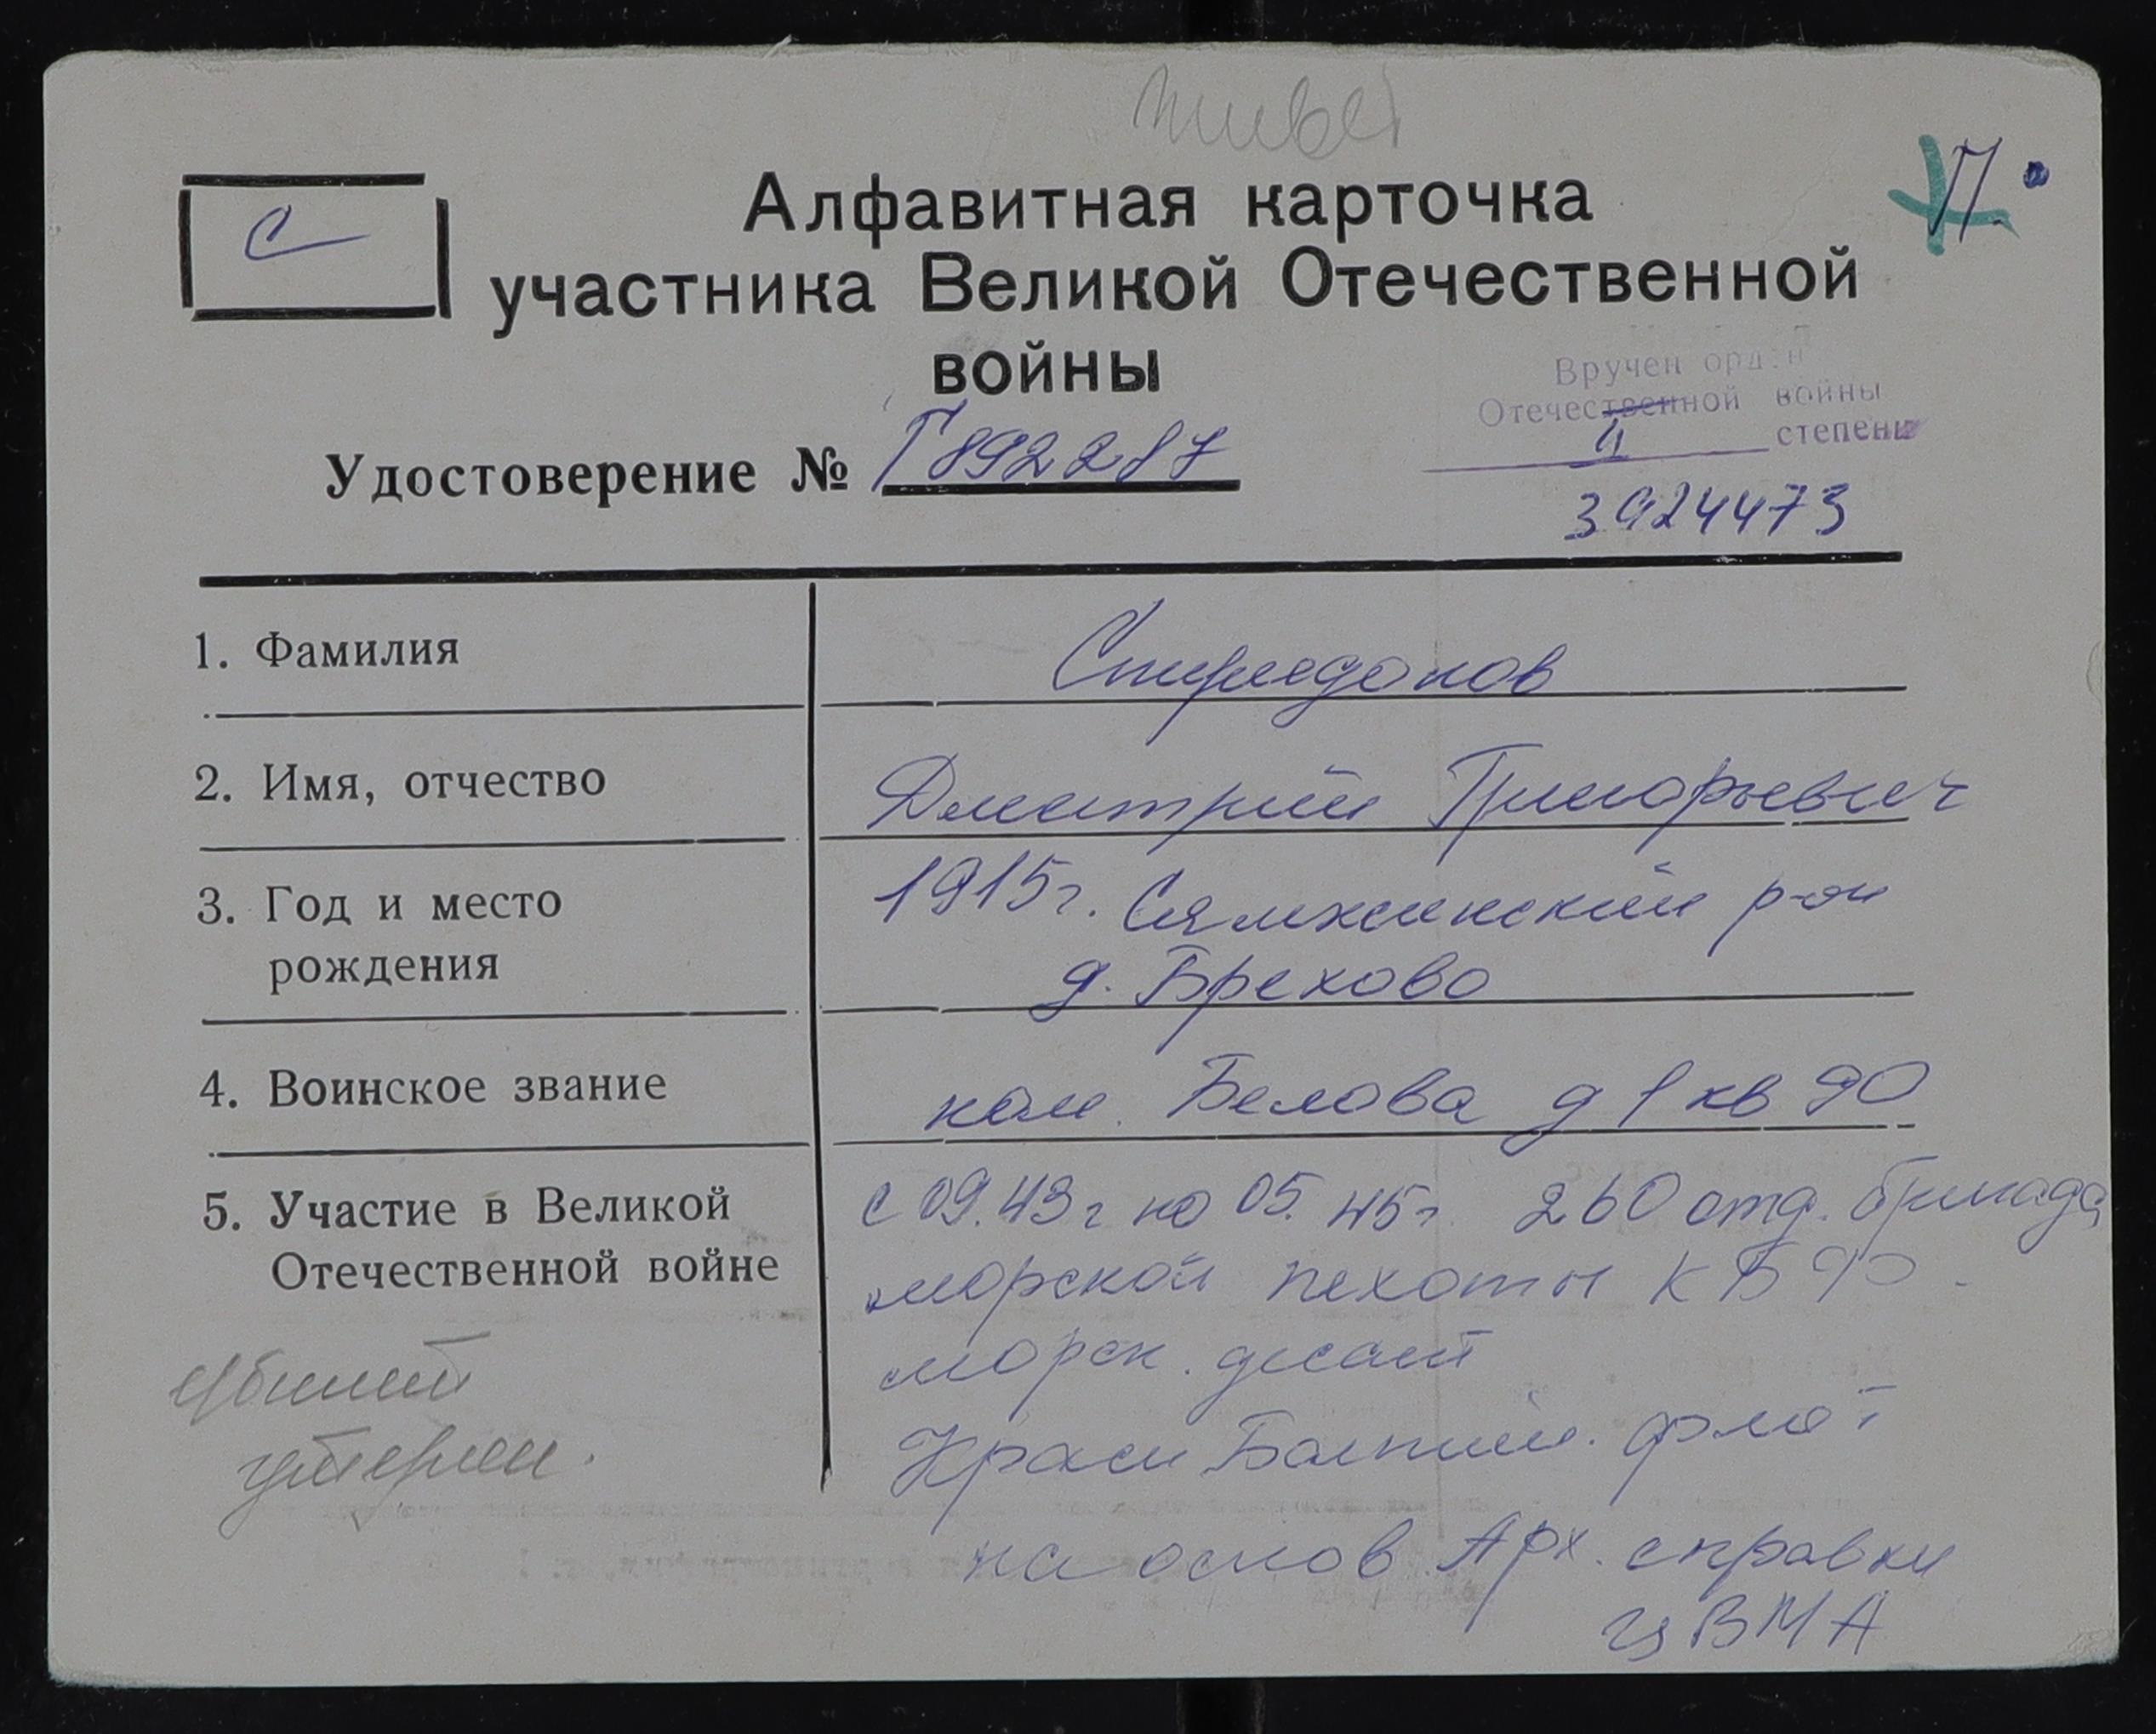 С
Алфавитная карточка
участника Великой Отечественной
войны
П.
Вручен орден
Отечественной войны
II степени
3924473
Удостоверение № Г892287
1. Фамилия
Спиридонов
2. Имя, отчество
Дмитрий Григорьевич
3. Год и место
рождения
1915г. Сямженский р-он
д. Брехово
4. Воинское звание
ком. Белова д 1 кв 90
5. Участие в Великой
Отечественной войне
с 09.43г по 05.45г. 260 отд. бригада
морской пехоты КБФ.
морск. десант
Красн Балтий. флот
на основ. Арх. справки
ЦВМА
утерян.